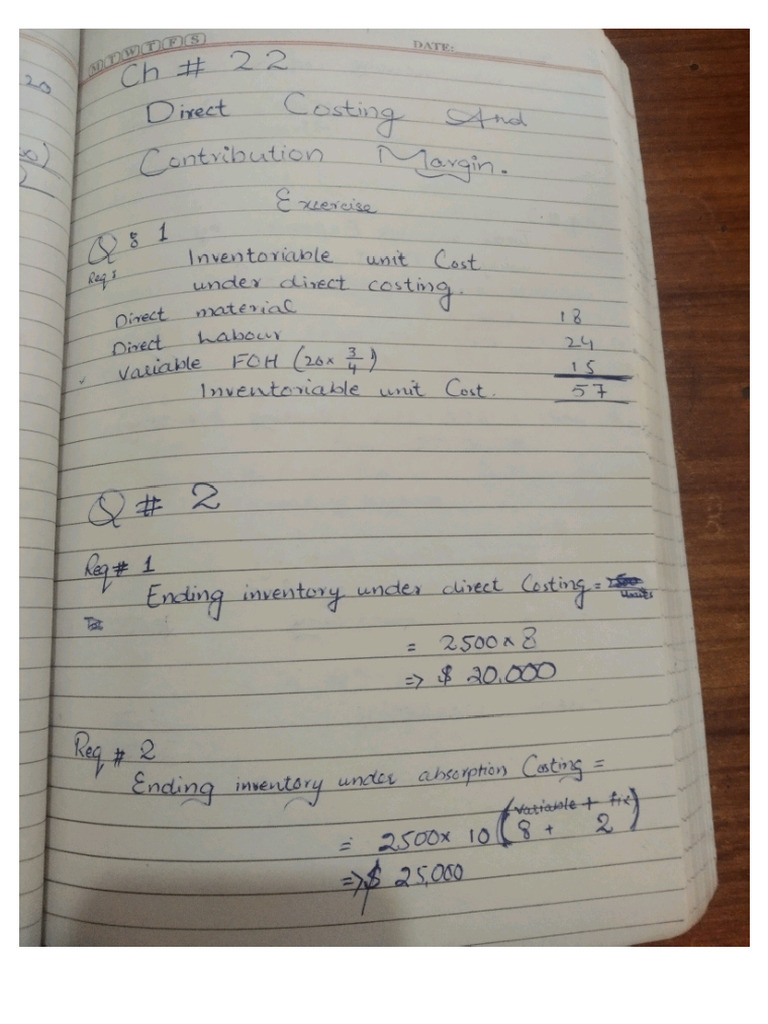 M T W T F S
DATE:
Ch # 22
20
Direct Costing And
Contribution Margin.
Excercise
Q 8 1
Inventoriable unit Cost
Req:
under direct costing.
Direct material 18
Direct Labour 24
Variable FOH (20 × 3/4) 15
Inventoriable unit Cost. 57
Q # 2
Req # 1
Ending inventory under direct Costing =
= 2500 × 8
=> $ 20,000
Req # 2
Ending inventory under absorption Costing =
(variable + fix)
= 2500 × 10 (8 + 2)
=> $ 25,000